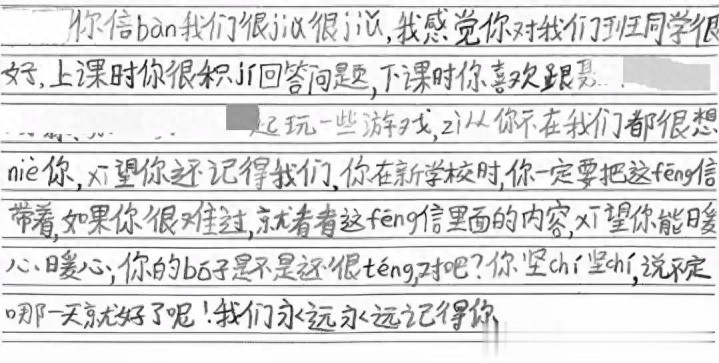 你倍bàn我们很jiǔ很jiǔ,我感觉你对我们班同学很
好,上课时你很积jí回答问题,下课时你喜欢跟
起玩一些游戏,zì从你不在我们都很想
niè你,xī望你还记得我们,你在新学校时,你一定要把这fēng信
带着,如果你很难过,就看看这fēng信里面的内容,xī望你能暖
心、暖心,你的bó子是不是还很téng,对吧?你坚chí坚chí,说不定
哪一天就好了呢!我们永远永远记得你